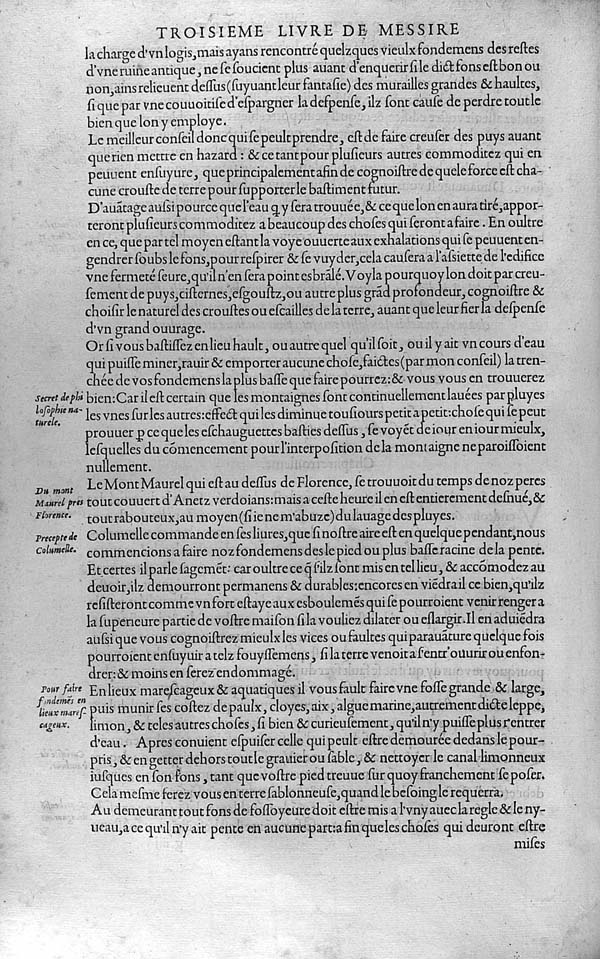 TROISIEME LIVRE DE MESSIRE
la charge d'vn logis, mais ayans rencontré quelzques vieulx fondemens des restes
d'vne ruine antique, ne se soucient plus auant d'enquerir si le dict fons est bon ou
non, ains relieuent dessus (suyuant leur fantasie) des murailles grandes & haultes,
si que par vne conuoitise d'espargner la despense, ilz sont cause de perdre tout le
bien que lon y employe.
Le meilleur conseil donc qui se peult prendre, est de faire creuser des puys auant
que rien mettre en hazard: & ce tant pour plusieurs autres commoditez qui en
peuuent ensuyure, que principalement afin de cognoistre de quele force est cha-
cune crouste de terre pour supporter le bastiment futur.
D'auātage aussi pource que l'eau q̄ y sera trouuée, & ce que lon en aura tiré, appor-
teront plusieurs commoditez a beaucoup des choses qui seront a faire. En oultre
en ce, que par tel moyen estant la voye ouuerte aux exhalations qui se peuuent en-
gendrer soubs le fons, pour respirer & se vuyder, cela causera a l'assiette de l'edifice
vne fermeté seure, qu'il n'en sera point esbrālé. Voyla pourquoy lon doit par creu-
sement de puys, cisternes, esgoustz, ou autre plus grād profondeur, cognoistre &
choisir le naturel des croustes ou escailles de la terre, auant que leur fier la despense
d'vn grand ouurage.
Or si vous bastissez en lieu hault, ou autre quel qu'il soit, ou il y ait vn cours d'eau
qui puisse miner, rauir & emporter aucune chose, faictes (par mon conseil) la tren-
chée de vos fondemens la plus basse que faire pourrez: & vous vous en trouuerez
Secret de phi
losophie na-
turele.
bien: Car il est certain que les montaignes sont continuellement lauées par pluyes
les vnes sur les autres: effect qui les diminue tousiours petit a petit: chose qui se peut
prouuer p ce que les eschauguettes basties dessus, se voyēt de iour en iour mieulx,
lesquelles du cōmencement pour l'interposition de la montaigne ne paroissoient
nullement.
Du mont
Maurel pres
Florence.
Le Mont Maurel qui est au dessus de Florence, se trouuoit du temps de noz peres
tout couuert d'Anetz verdoians: mais a ceste heure il en est entierement desnué, &
tout rabouteux, au moyen (si ie ne m'abuze) du lauage des pluyes.
Precepte de
Columelle.
Columelle commande en ses liures, que si nostre aire est en quelque pendant, nous
commencions a faire noz fondemens des le pied ou plus basse racine de la pente.
Et certes il parle sagemēt: car oultre ce q̄ s'ilz sont mis en tel lieu, & accōmodez au
deuoir, ilz demourront permanens & durables: encores en viēdra il ce bien, qu'ilz
resisteront comme vn fort estaye aux esboulemēs qui se pourroient venir renger a
la superieure partie de vostre maison si la vouliez dilater ou eslargir. Il en aduiēdra
aussi que vous cognoistrez mieulx les vices ou faultes qui parauāture quelque fois
pourroient ensuyuir a telz fouyssemens, si la terre venoit a s'entr'ouurir ou enfon-
drer: & moins en serez endommagé.
Pour faire
fondemēs en
lieux maresc-
cageux.
En lieux marescageux & aquatiques il vous fault faire vne fosse grande & large,
puis munir ses costez de paulx, cloyes, aix, algue marine, autrement dicte leppe,
limon, & teles autres choses, si bien & curieusement, qu'il n'y puisse plus r'entrer
d'eau. Apres conuient espuiser celle qui peult estre demourée dedans le pour-
pris, & en getter dehors tout le grauier ou sable, & nettoyer le canal limonneux
iusques en son fons, tant que vostre pied treuue sur quoy franchement se poser.
Cela mesme ferez vous en terre sablonneuse, quand le besoing le requerra.
Au demeurant tout fons de fossoyeure doit estre mis a l'vny auec la regle & le ny-
ueau, a ce qu'il n'y ait pente en aucune part: a fin que les choses qui deuront estre
mises